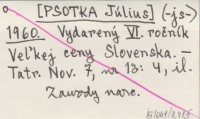 [PSOTKA Július] (-js-)
1960. Vydarený VI. ročník
Veľkej ceny Slovenska. -
Tatr. Nov. 7, nr 13: 4, il.
Zawody narc.